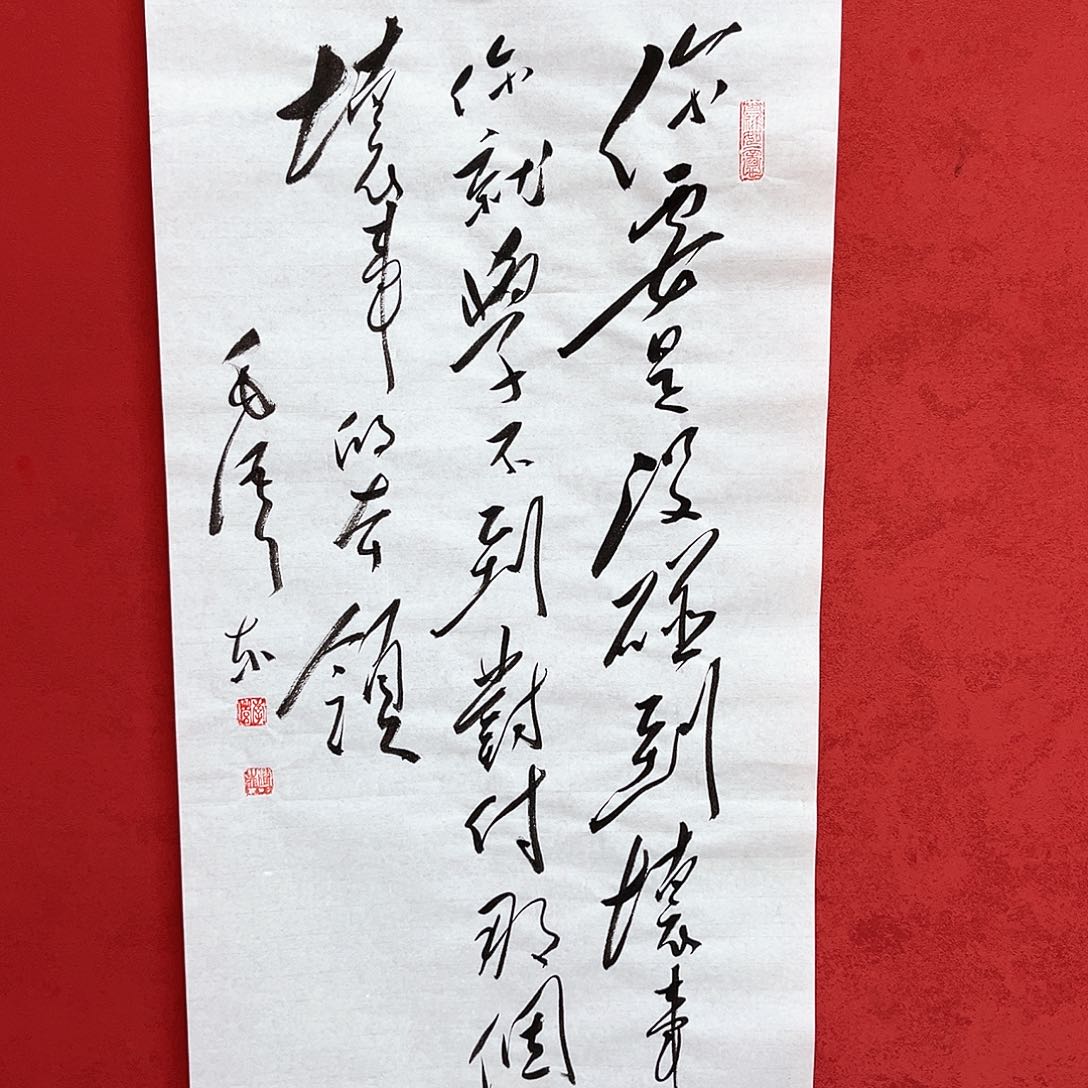 你要是没碰到壞事
你就學不到對付那個
壞事的本領
毛澤东